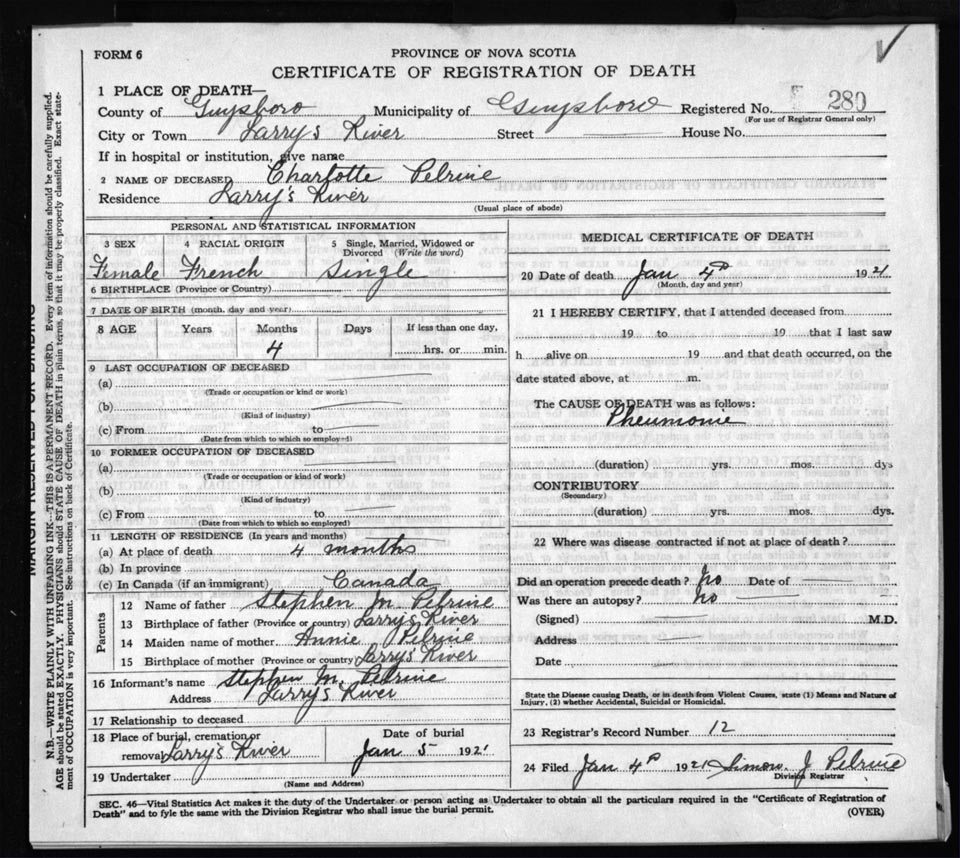 FORM 6
PROVINCE OF NOVA SCOTIA
CERTIFICATE OF REGISTRATION OF DEATH
1 PLACE OF DEATH—
County of Guysboro Municipality of Guysboro Registered No. 280
(For use of Registrar General only)
City or Town Larry's River Street House No.
If in hospital or institution, give name
2 NAME OF DECEASED Charlotte Pelrine
Residence Larry's River
(Usual place of abode)
PERSONAL AND STATISTICAL INFORMATION
3 SEX 4 RACIAL ORIGIN 5 Single, Married, Widowed or Divorced (Write the word)
Female French Single
6 BIRTHPLACE (Province or Country)
7 DATE OF BIRTH (month, day and year)
8 AGE Years Months Days If less than one day,
4 hrs. or min.
9 LAST OCCUPATION OF DECEASED
(a)
(Trade or occupation or kind or work)
(b)
(Kind of industry)
(c) From to
(Date from which to which so employed)
10 FORMER OCCUPATION OF DECEASED
(a)
(Trade or occupation or kind of work)
(b)
(Kind of industry)
(c) From to
(Date from which to which so employed)
11 LENGTH OF RESIDENCE (In years and months)
(a) At place of death 4 months
(b) In province
(c) In Canada (if an immigrant) Canada
Parents
12 Name of father Stephen M. Pelrine
13 Birthplace of father (Province or country) Larry's River
14 Maiden name of mother Annie Pelrine
15 Birthplace of mother (Province or country) Larry's River
16 Informant's name Stephen M. Pelrine
Address Larry's River
17 Relationship to deceased
18 Place of burial, cremation or removal Larry's River Date of burial Jan 5 1921
19 Undertaker
(Name and Address)
MEDICAL CERTIFICATE OF DEATH
20 Date of death Jan 4th 1921
(Month, day and year)
21 I HEREBY CERTIFY, that I attended deceased from
19 to 19 that I last saw
h alive on 19 and that death occurred, on the
date stated above, at m.
The CAUSE OF DEATH was as follows:
Pneumonie
(duration) yrs. mos. dys
CONTRIBUTORY
(Secondary)
(duration) yrs. mos. dys.
22 Where was disease contracted if not at place of death?
Did an operation precede death? no Date of
Was there an autopsy? no
(Signed) M.D.
Address
Date
State the Disease causing Death, or in death from Violent Causes, state (1) Means and Nature of
Injury, (2) whether Accidental, Suicidal or Homicidal.
23 Registrar's Record Number 12
24 Filed Jan 4th 1921 Simon J Pelrine
Division Registrar
SEC. 46—Vital Statistics Act makes it the duty of the Undertaker or person acting as Undertaker to obtain all the particulars required in the "Certificate of Registration of
Death" and to fyle the same with the Division Registrar who shall issue the burial permit.
(OVER)
MARGIN RESERVED FOR BINDING
N.B.—WRITE PLAINLY WITH UNFADING INK—THIS IS A PERMANENT RECORD. Every item of information should be carefully supplied.
AGE should be stated EXACTLY. PHYSICIANS should STATE CAUSE OF DEATH in plain terms, so that it may be properly classified. Exact statement of OCCUPATION is very important. See instructions on back of Certificate.